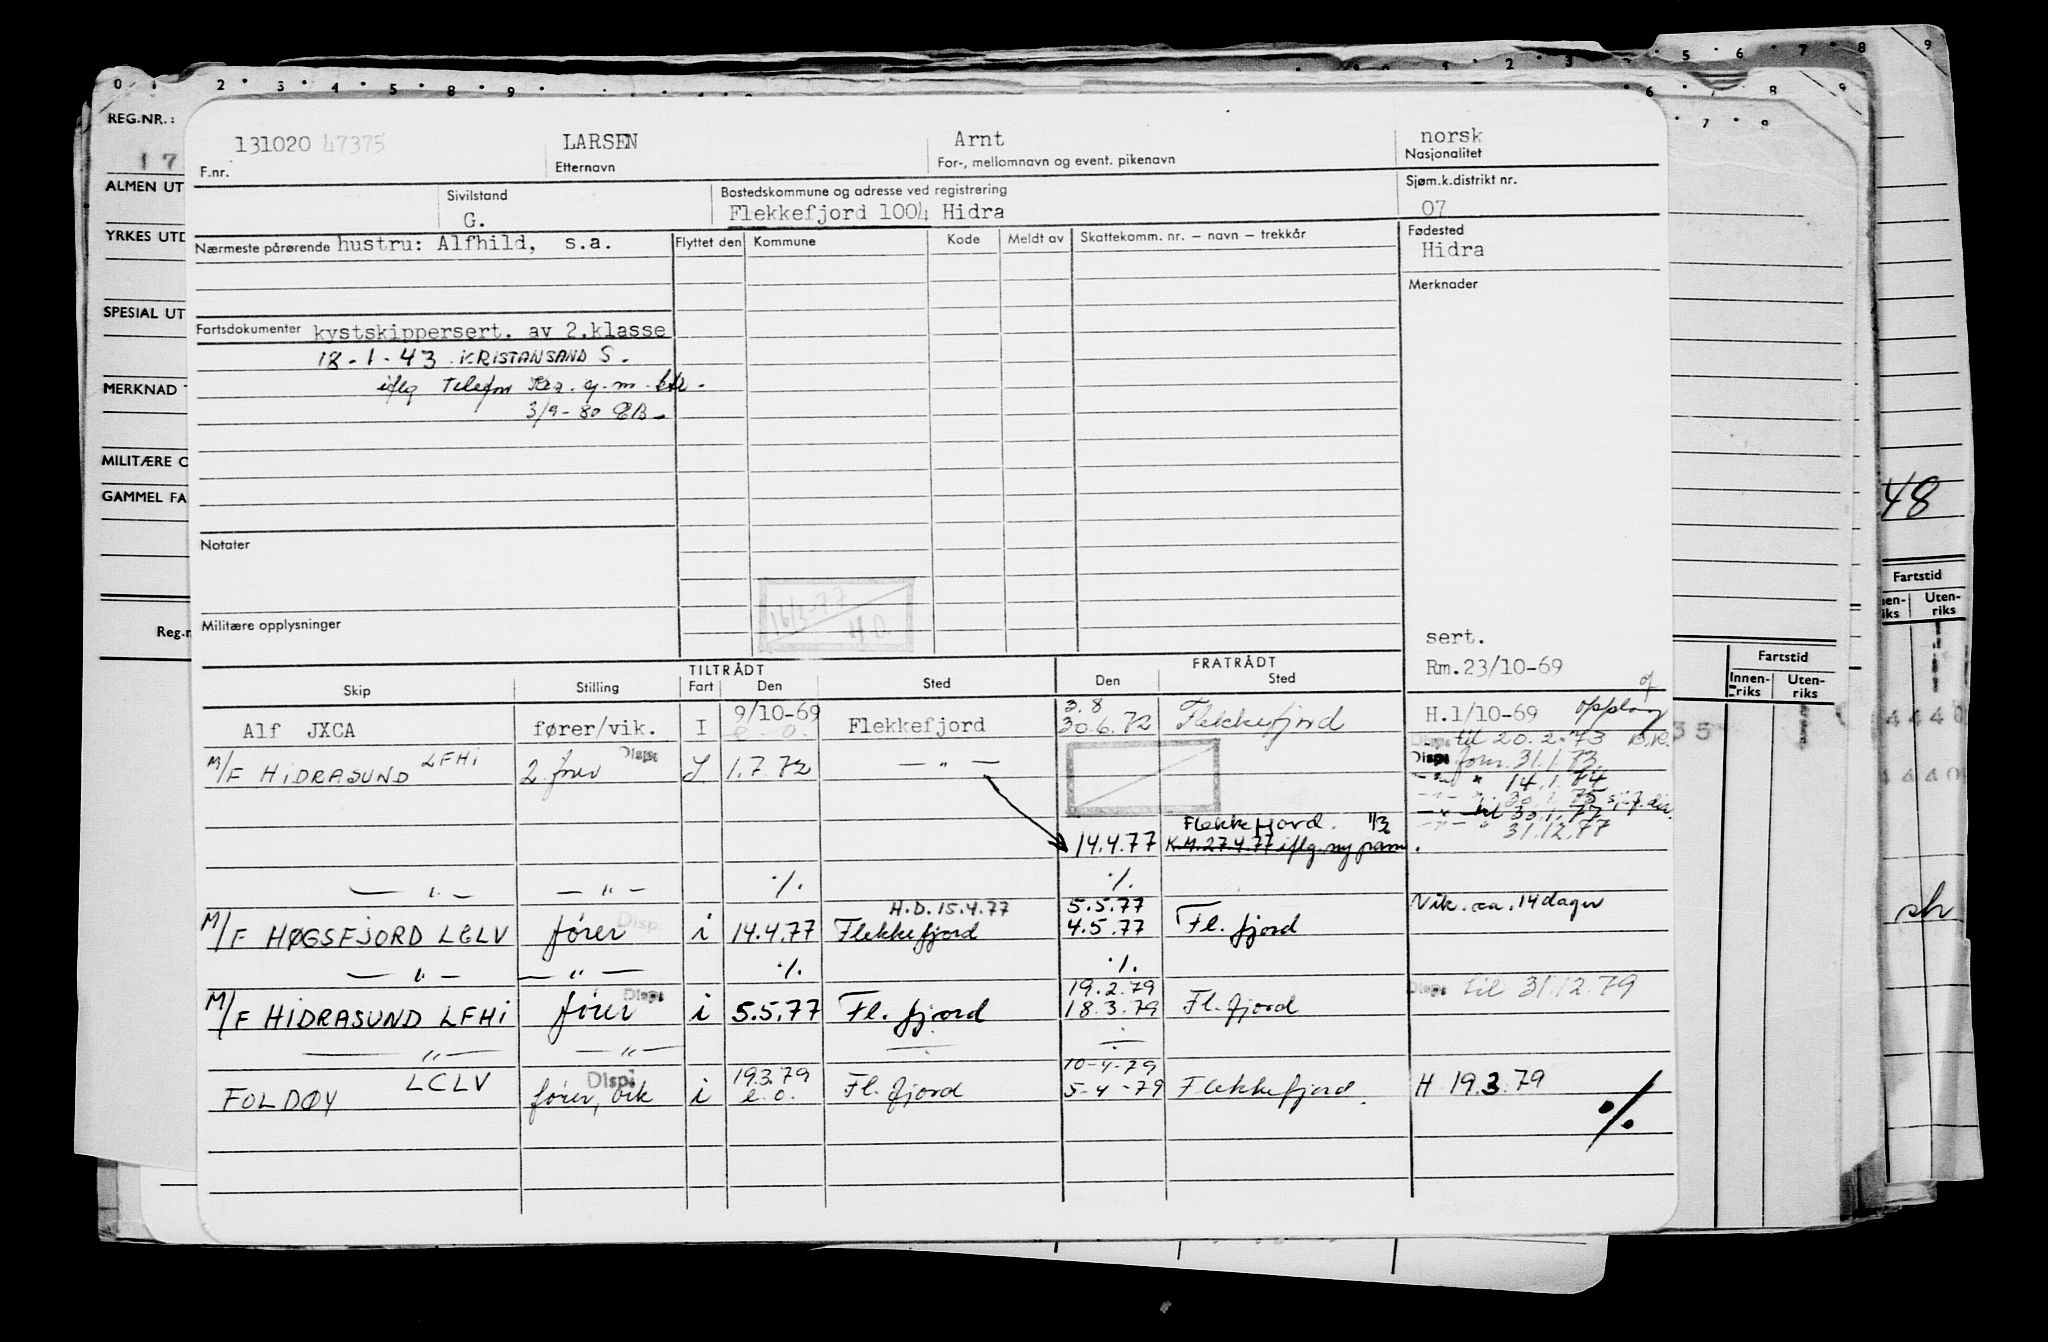 0 1 2 3 4 5 8 9
REG.NR.:
17
ALMEN UT
YRKES UTD
SPESIAL UT
MERKNAD T
MILITÆRE O
GAMMEL FA
Reg.n
131020 47375 LARSEN Arnt norsk
F.nr. Etternavn For-, mellomnavn og event. pikenavn Nasjonalitet
Sivilstand Bostedskommune og adresse ved registrering Sjøm.k.distrikt nr.
G. Flekkefjord 1004 Hidra 07
Nærmeste pårørende hustru: Alfhild, s.a. Flyttet den Kommune Kode Meldt av Skattekomm. nr. – navn – trekkår Fødested
Hidra
Merknader
Fartsdokumenter kystskippersert. av 2.klasse
18-1-43 KRISTANSAND S.
iflg Telefon
3/9-80 EB
Notater
16/3-77
H.D.
Militære opplysninger
sert.
Rm.23/10-69
TILTRÅDT FRATRÅDT
Skip Stilling Fart Den Sted Den Sted
Alf JXCA fører/vik. I 9/10-69 e.o. Flekkefjord 3.8 30.6.72 Flekkefjord H.1/10-69
Disp: til 20.2.73 B.R.
M/F HIDRASUND LFHI 2. fører Disp: I 1.7.72 — " — Disp: 31.1.73.
— " — " 14.1.74
— " — " 30.1.75
— " — til 30.1.77.
— " — " 31.12.77
Flekkefjord. 1/3
14.4.77 K.M. 27.4.77 iflg. ny
— " — — " — ./. ./.
M/F HØGSFJORD LCLV fører Disp. i 14.4.77 H.D. 15.4.77 Flekkefjord 5.5.77 4.5.77 Fl. fjord Vik. ca. 14 dager
— " — — " — ./. ./.
M/F HIDRASUND LFHI fører Disp: i 5.5.77 Fl. fjord 19.2.79 18.3.79 Fl. fjord Disp: til 31.12.79
— " — — " —
FOLDØY LCLV fører, vik Disp: i 19.3.79 e.o. Fl. fjord 10-4-79 5-4-79 Flekkefjord. H 19.3.79
./.
48
Fartstid
Innen-riks Uten-riks
Fartstid
Uten-riks